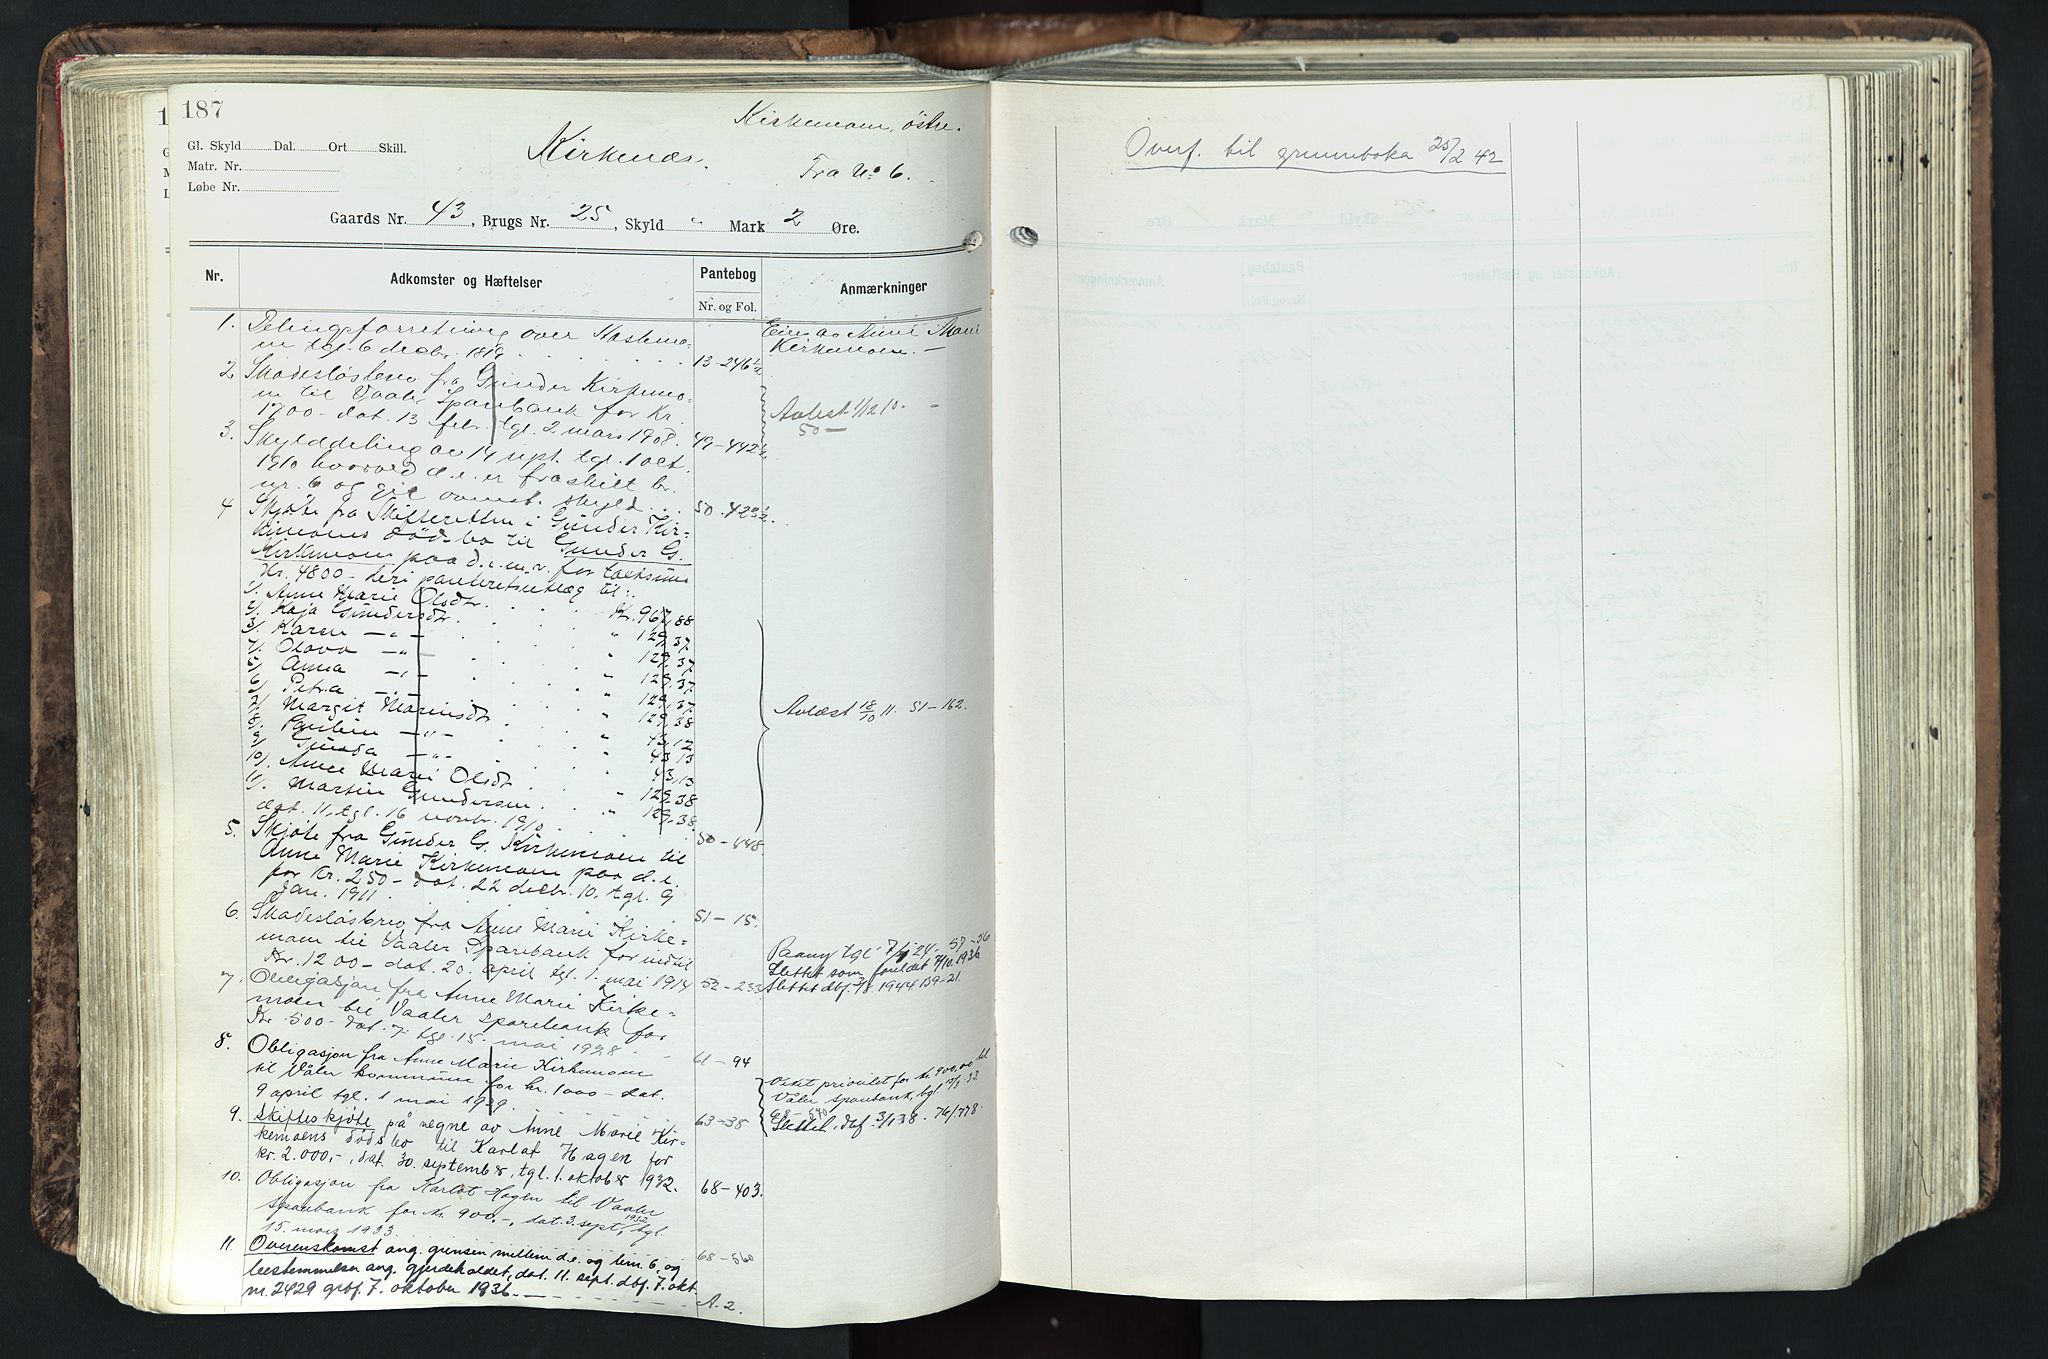 187
Kirkemoen, østre.
Gl. Skyld Dal. Ort Skill.
Matr. Nr.
Løbe Nr.
Kirkenæs.
Fra No 6.
Gaards Nr. 43, Brugs Nr. 25, Skyld " Mark 2 Øre.
Nr. Adkomster og Hæftelser Pantebog Anmærkninger
Nr. og Fol.
1. Delingsforretning over Haslemo-
en tgl. 6 decbr. 1819. 13-246½
Eies av Anne Marie
Kirkemoen. –
2. Skadesløsbrev fra Gunder Kirkemo-
en til Vaaler Sparebank for Kr.
1700- dat. 13 febr. tgl. 2 mars 1908. 49-442½
Avlæst 1/12 10. –
50 –
3. Skylddeling av 14 sept. tgl. 1 oct.
1910 hvorved d.e. er fraskilt br.
nr. 6 og git ovenst. skyld... 50-423½
4. Skjøte fra Skifteretten i Gunder Kir-
kemoens dødsbo til Gunder G.
Kirkemoen paa d.e. m.v. for taksum
Kr. 4800- deri panteretsutlæg til:
1/. Anne Marie Olsdtr. Kr. 967,88
2/. Kaja Gundersdtr. " 129,37
3/. Karen –"– " 129,37
4/. Olava –"– " 129,37
5/. Anna –"– " 129,37
6/. Petra –"– " 129,38
7/. Margit Marinsdtr. " 43,12
8/. Pauline –"– " 43,13
9/. Gunda –"– " 43,13
10/. Anne Marie Olsdtr. " 129,38
11/. Martin Gundersen. " 129,38.
dat. 11, tgl. 16 novbr. 1910. 50-448.
Avlæst 18/10 11. 51-162.
5. Skjøte fra Gunder G. Kirkemoen til
Anne Marie Kirkemoen paa d.e.
for Kr. 250- dat. 22 decbr. 10, tgl. 9
jan. 1911. 51-15.
6. Skadesløsbrev fra Anne Marie Kirke-
moen til Vaaler Sparebank for indtil
Kr. 1200- dat. 20. april tgl. 1. mai 1914 52-233
Paany tgl. 24. 57-56
Slettet som foreldet 7/10 1936
7. Obligasjon fra Anne Marie Kirke-
moen til Vaaler sparebank for
Kr. 500- dat. 7. tgl. 15. mai 1928. 61-94
Slettet dbf. 7/8. 1944 139-21.
8. Obligasjon fra Anne Marie Kirkemoen
til Våler kommune for kr. 1000- dat.
9 april tgl. 1 mai 1929. 63-38
Veket prioritet for kr. 900,00 til
Våler sparebank, tgl. 15/3 33
68-540
Slettet. dbf. 3/1 38. 76/778.
9. Skifteskjøte på vegne av Anne Marie Kir-
kemoens dødsbo til Karlot Hagen for
kr. 2.000,-, dat. 30. september, tgl. 1. oktober 1932. 68-403.
10. Obligasjon fra Karlot Hagen til Vaaler
sparebank for kr. 900,-, dat. 3. sept. 1932, tgl.
15. mars 1933. 68-560
11. Overenskomst ang. grensen mellem d.e. og br.nr. 6, og
bestemmelser ang. gjerdeholdet, dat. 11. sept. dbf. 7. okt.
nr. 2429 grbf. 7. oktober 1936. A. 2.
Overf. til grunnboka 25/2 42